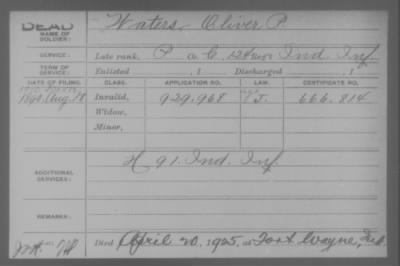 DEAD
NAME OF SOLDIER: Waters, Oliver P.
SERVICE: Late rank, P Co. C, 12 Ind Inf.
TERM OF SERVICE: Enlisted , 1 Discharged , 1
DATE OF FILING. CLASS. APPLICATION NO. LAW. CERTIFICATE NO.
1890 Aug. 18 Invalid, 929.968 666.814
Widow,
Minor,
ADDITIONAL SERVICES: H 91. Ind. Inf.
REMARKS:
Died April 20, 1925, at Fort Wayne, Ind.